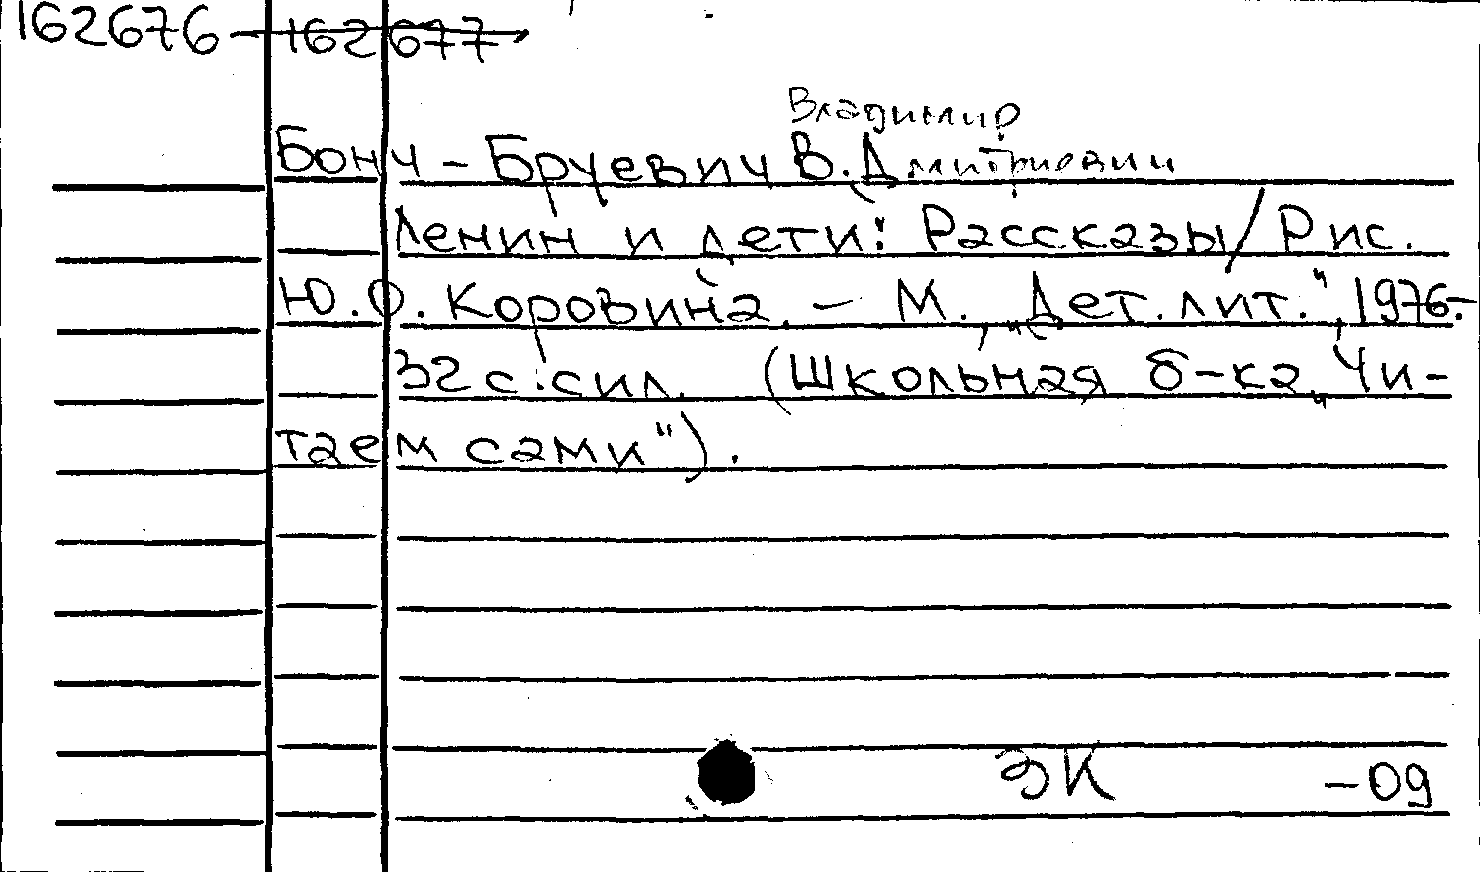 162676 - 162677
Владимир
Бонч - Бруевич В. Дмитриевич
Ленин и дети: Рассказы / Рис.
Ю. О. Коровина. - М., „Дет. лит.", 1976.-
32 с.: с ил. (Школьная б-ка „Чи-
таем сами").
ЭК -09